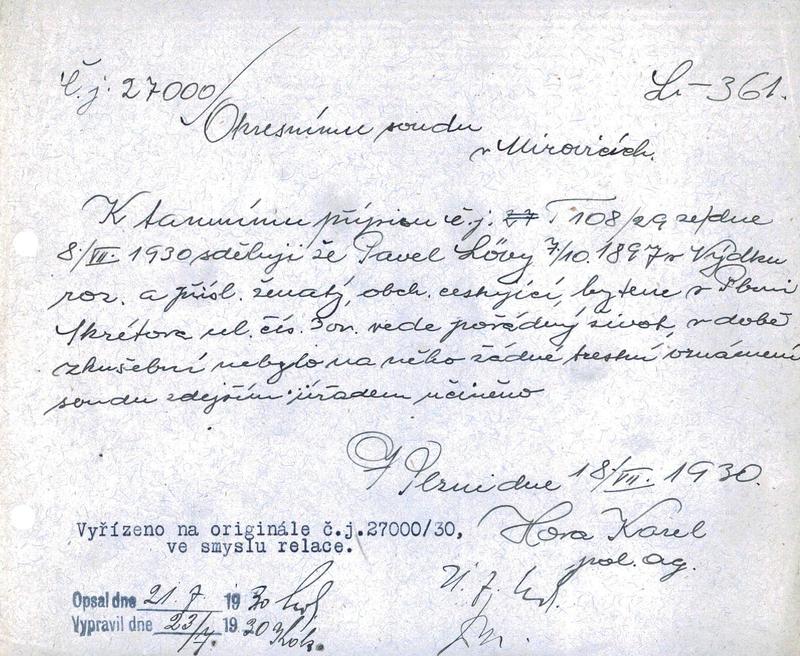 Č.j. 27000/ Lö-361.
Okresnímu soudu
v Mirovicích.
K tamnímu přípisu č.j. T 108/29 ze dne
8/VII. 1930 sděluji že Pavel Löwy 7/10. 1897 v Vojdku
roz. a přísl. ženatý, obch. cestující, bytem v Plzni
Skrétova ul. čís. vede pořádný život, v době
zkušební nebylo na něho žádné trestní oznámení
soudu zdejším úřadem učiněno
V Plzni dne 18/VII. 1930.
Vyřízeno na originále č.j.27000/30,
ve smyslu relace.
Hora Karel
pol. ag.
Opsal dne 21.7. 1930
Vypravil dne 23/7. 1930